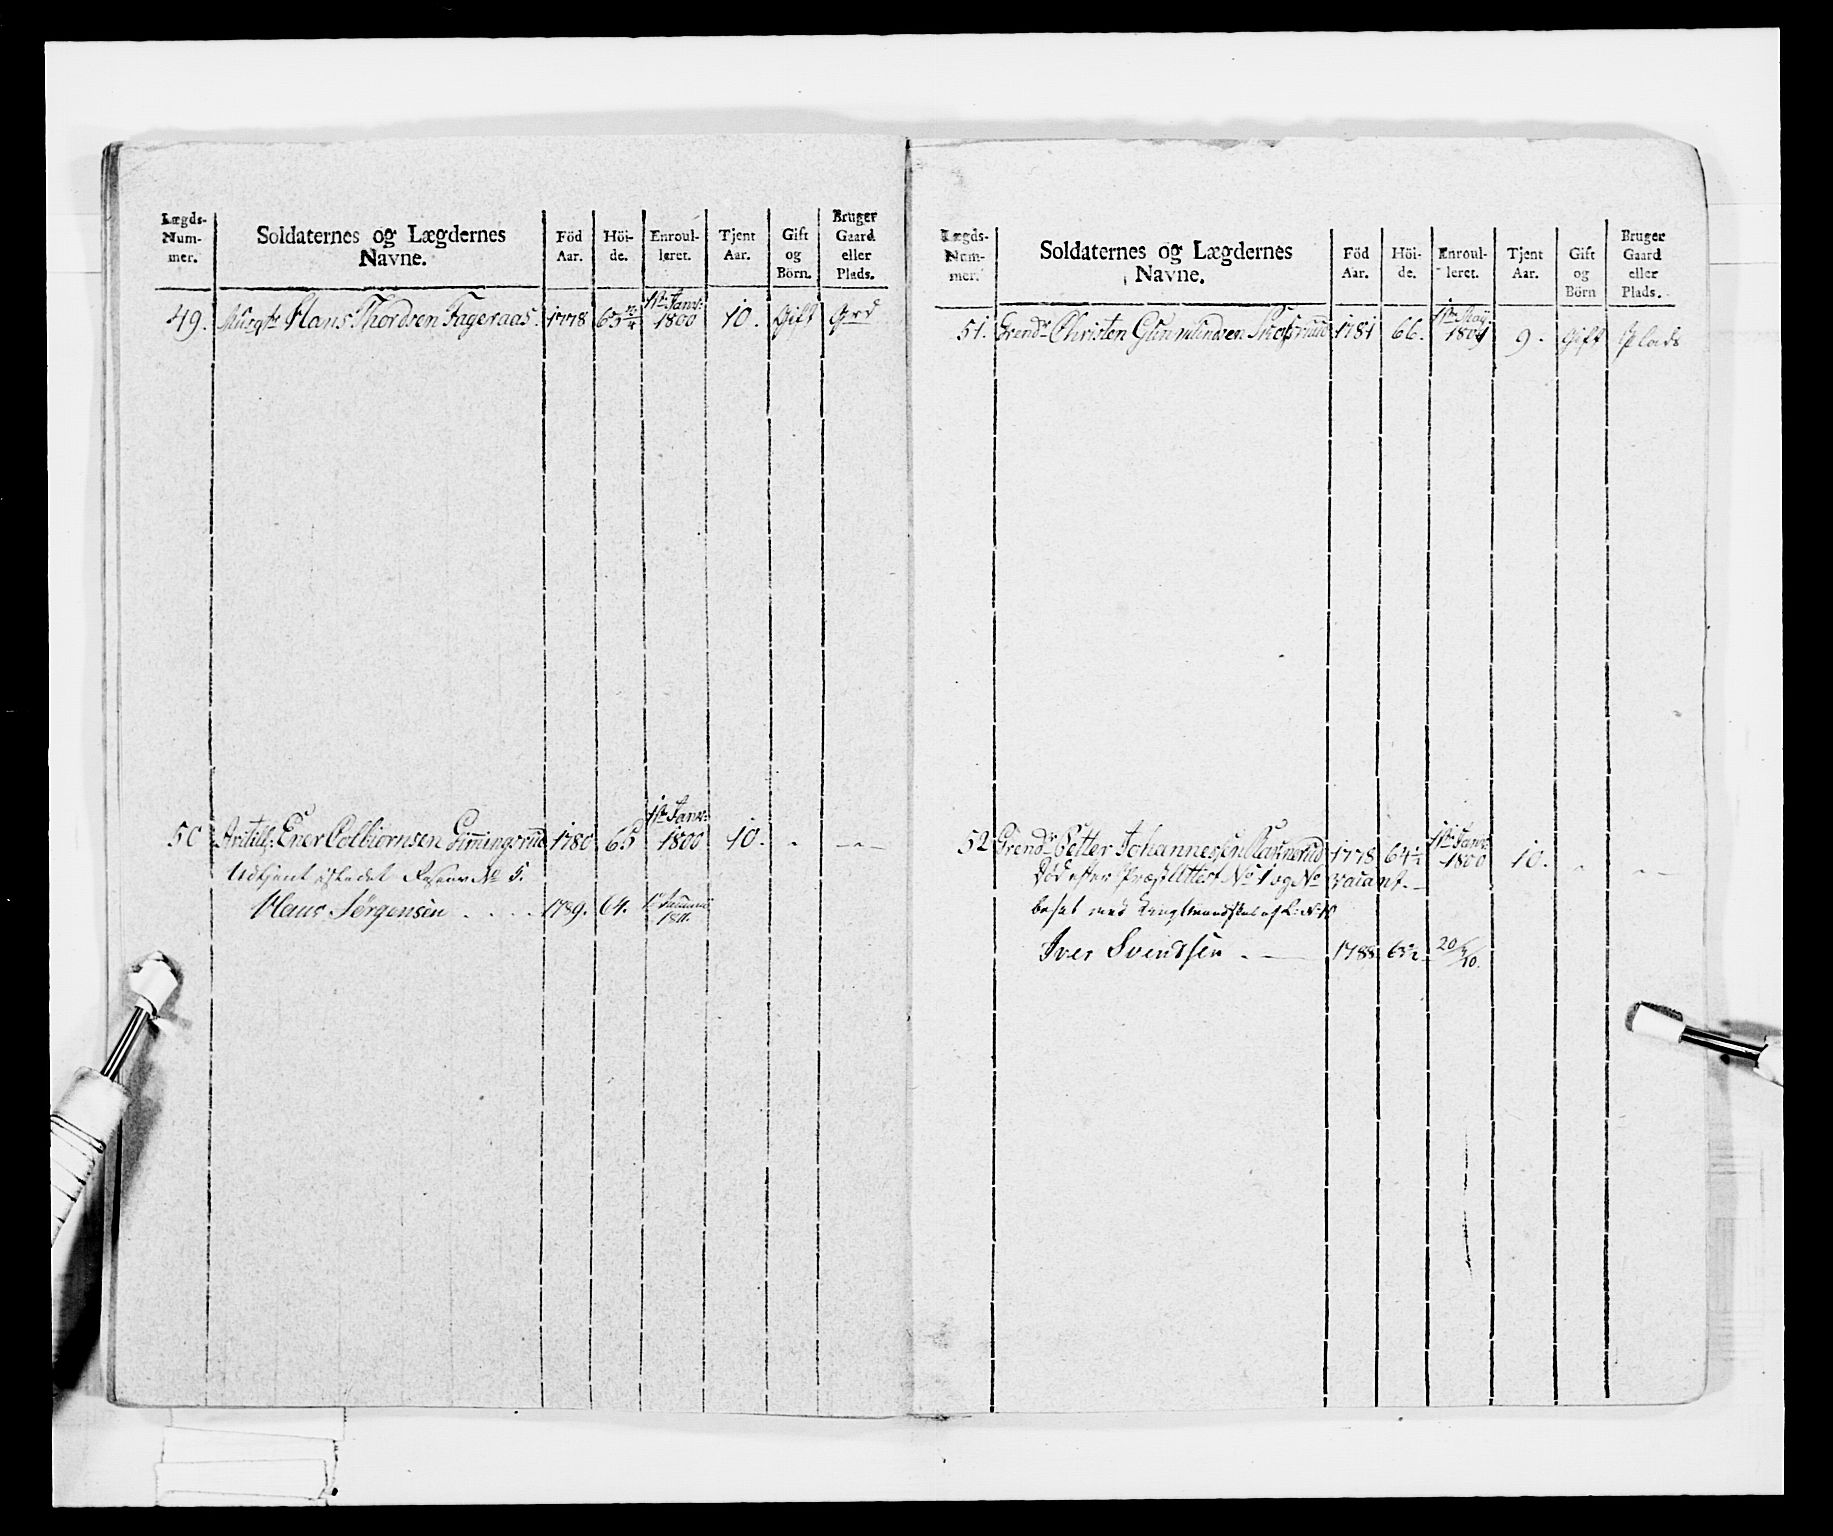 Lægds-Num-mer. Soldaternes og Lægdernes Navne. Föd Aar. Höi-de. Enroul-leret. Tjent Aar. Gift og Börn. Bruger Gaard eller Plads.
49. Musqtr Hans Thordsen Fageraas. 1778 65 1ste Janr: 1800 10. Gift Grd
50 Artill: Ener Colbiörnsen 1780 65 1ste Janr: 1800 10. - -
Udtjent Reserv No 5.
Hans Jørgensen . . . . 1789. 64. 1 Januar 1811.
Lægds-Num-mer. Soldaternes og Lægdernes Navne. Föd Aar. Höi-de. Enroul-leret. Tjent Aar. Gift og Börn Bruger Gaard eller Plads.
51. Grendr Christen Gunmundsen 1781 66. 1ste May 1801 9. Gift Plads
52 Grendr Petter Johannessen 1778 64½ 1ste Janr: 1800 10. - -
Död efter Præst Attest No 1 og No vacant.
besat med af L: No
Iver Svendsen . — 1788 20/10.